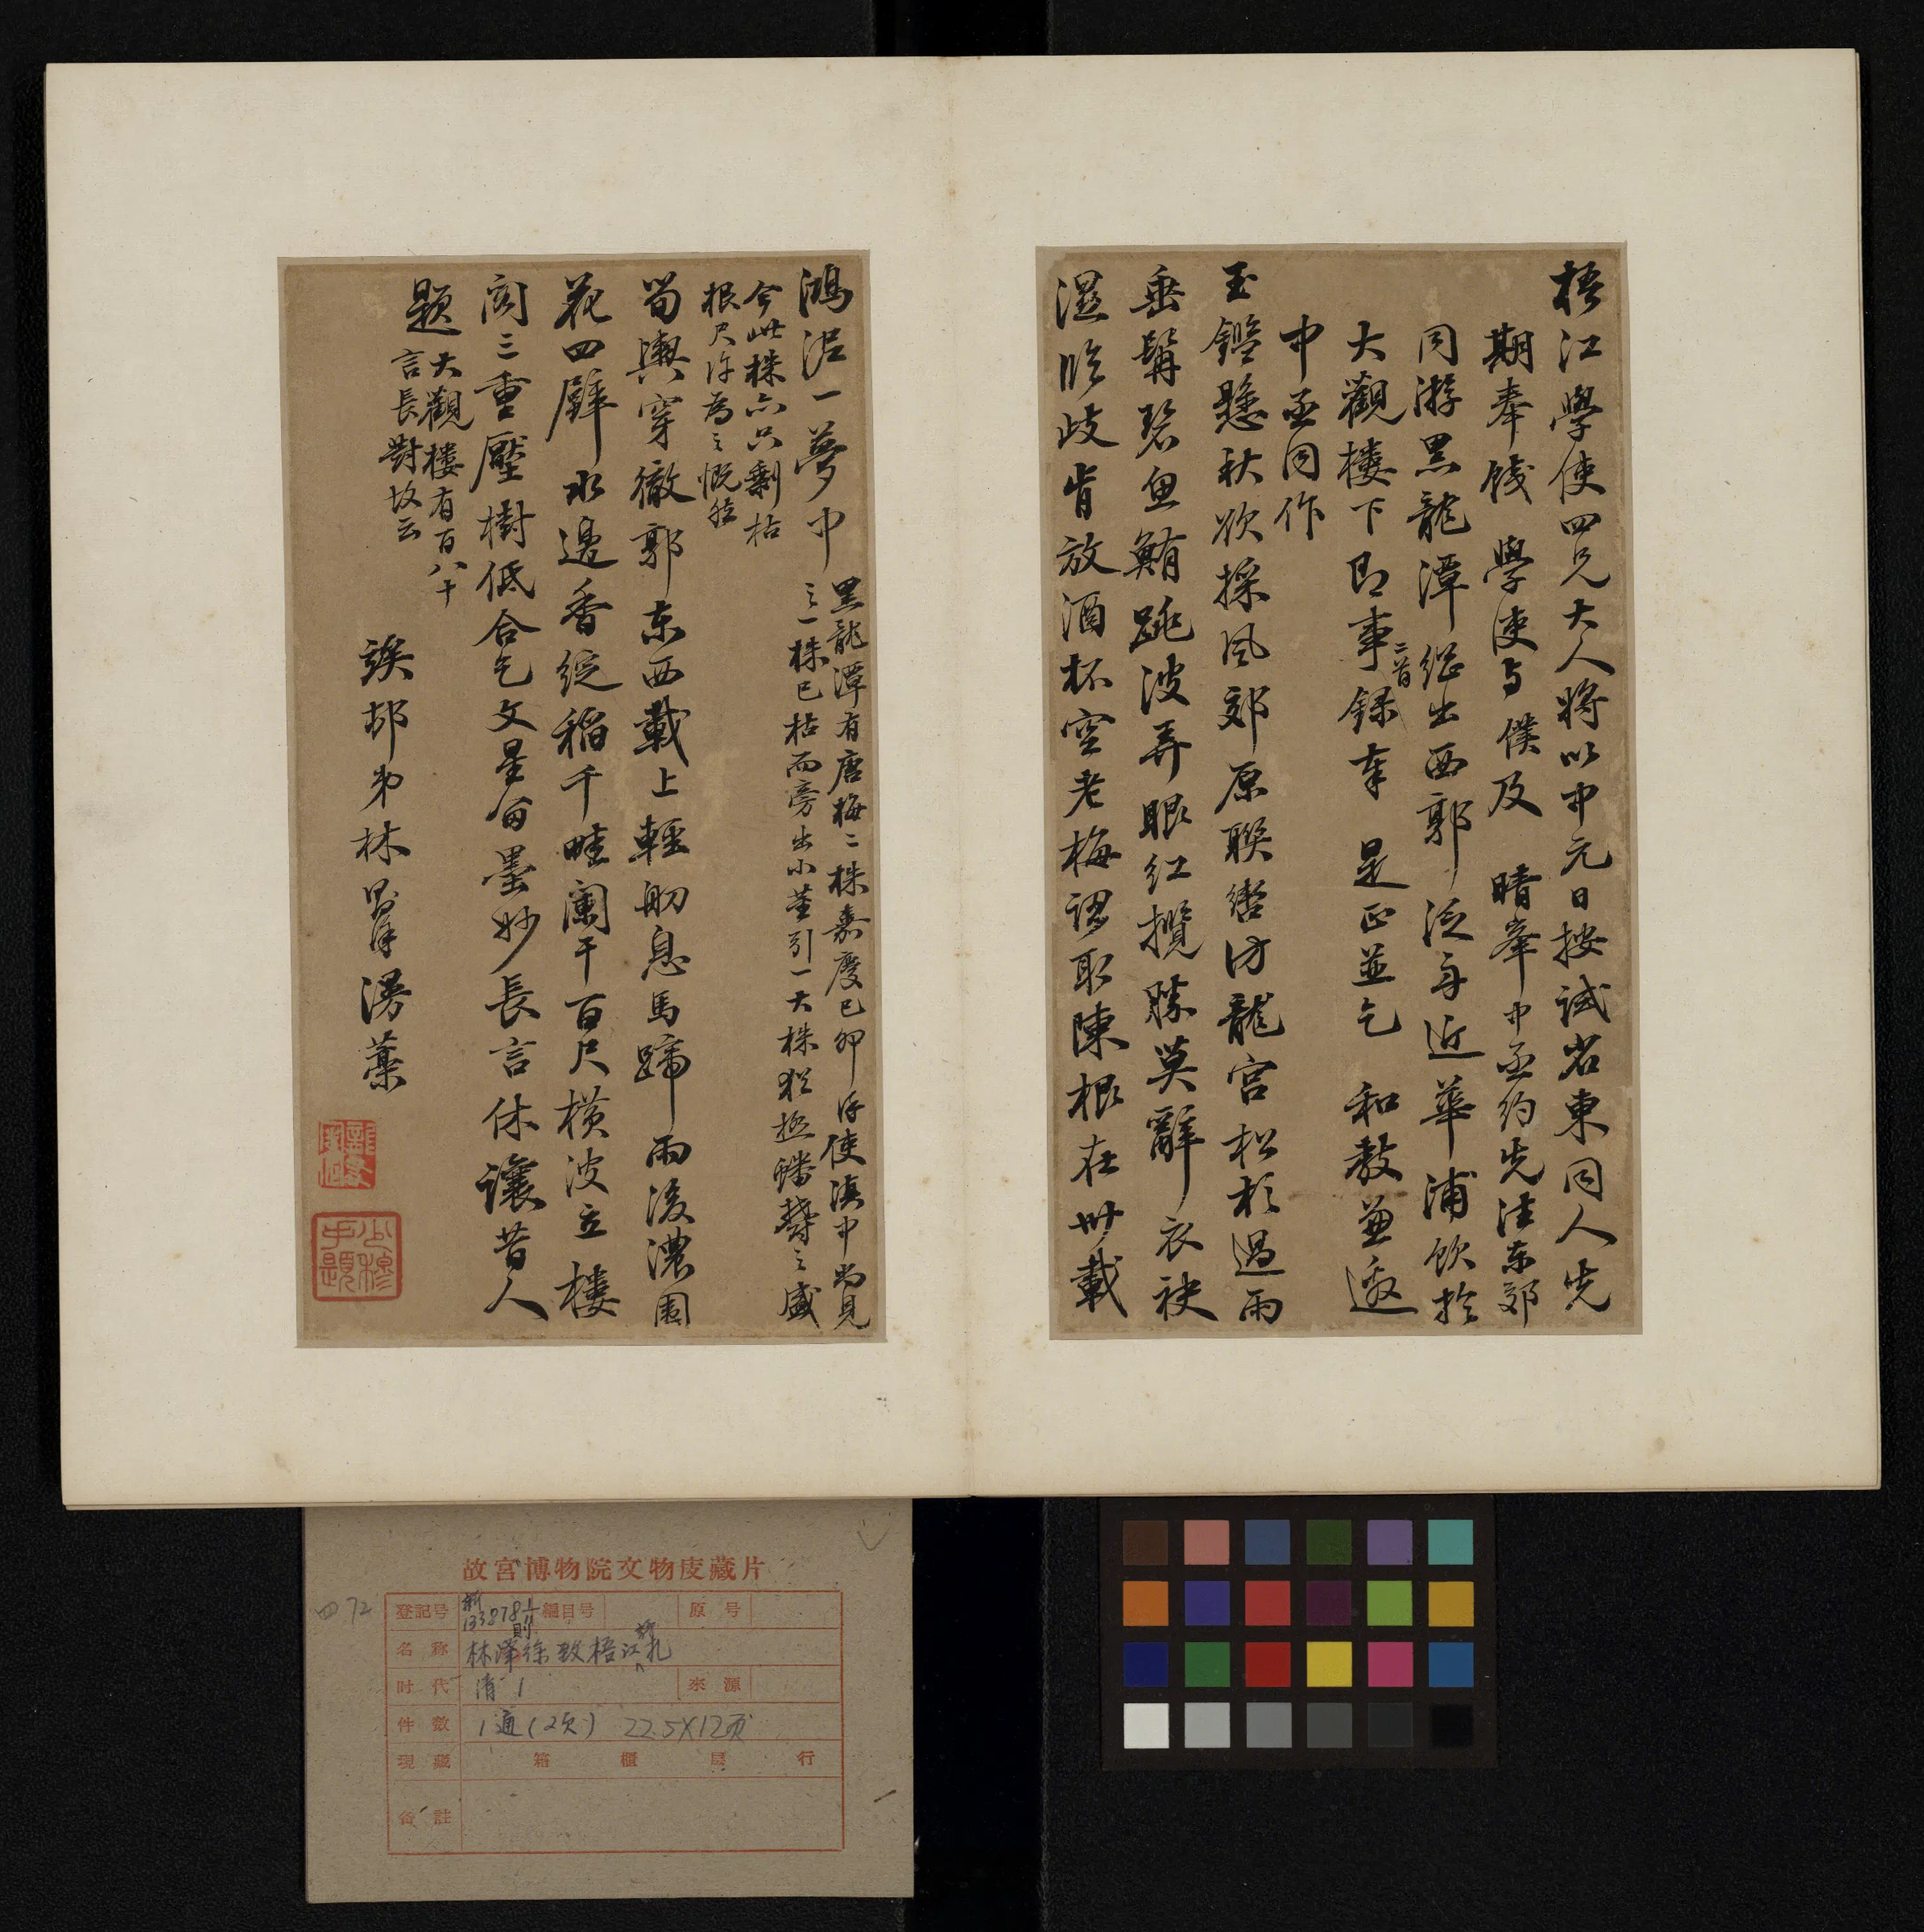 梧江學使四兄大人將以中元日按試省東同人先
期奉餞　學使与僕及　晴峯中丞約先法东郊
同游黑龍潭繼出西郭泛舟近華浦飲於
大觀樓下即事二首錄奉　是正並乞　和教兼邀
中丞同作
玉鑑懸秋欲採風郊原聯轡访龍宮松杉過雨
垂髯碧魚鮪跳波弄眼紅攬勝莫辭衣袂
濕臨歧肯放酒杯空老梅認取陳根在卅載
鴻泥一夢中
黑龍潭有唐梅二株嘉慶己卯仔使滇中尚見
之一株已枯而旁出小董引一大株猶極蟠鬱之盛
今此株亦只剩枯
根尺许為之慨然
筍輿穿徹郭东西載上輕舠息馬蹄雨後濃圍
花四壁水邊香綻稻千畦闌干百尺橫波立樓
閣三重壓樹低合乞文星留墨妙長言休讓昔人
題
大觀樓有百八十
言長對故云
竢邨弟林則徐漫藁
少穆
手題
故宮博物院文物庋藏片
四72
登記号 新133878 1/11 編目号 原号
名称 林則徐致梧江札
时代 清 來源
件数 1通(2页) 22.5X12页
現藏 箱 櫃 层 行
备註